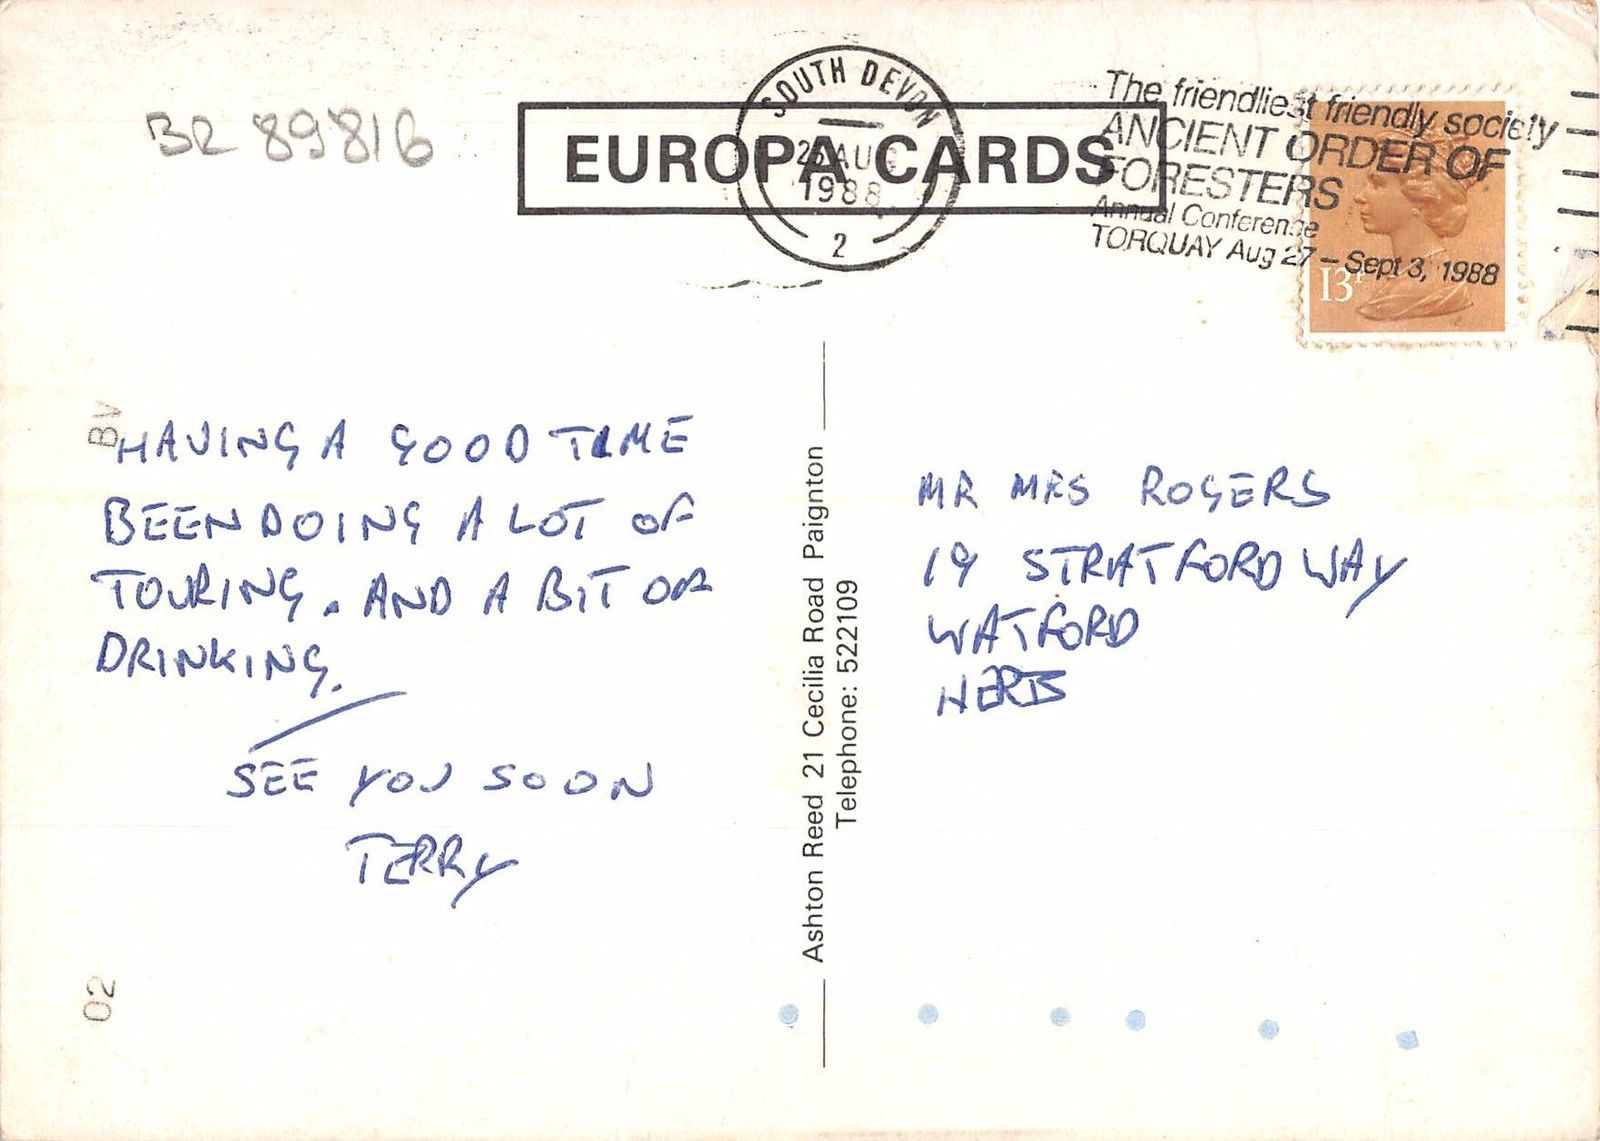 BR 89816
EUROPA CARDS
SOUTH DEVON
AU
1988
2
The friendliest friendly society
ANCIENT ORDER OF
FORESTERS
Annual Conference
TORQUAY Aug 27 – Sept 3, 1988
13P
BV
HAVING A GOOD TIME
BEEN DOING A LOT OF
TOURING. AND A BIT OF
DRINKING.
SEE YOU SOON
TERRY
02
Ashton Reed 21 Cecilia Road Paignton
Telephone: 522109
MR MRS ROGERS
19 STRATFORD WAY
WATFORD
HERTS